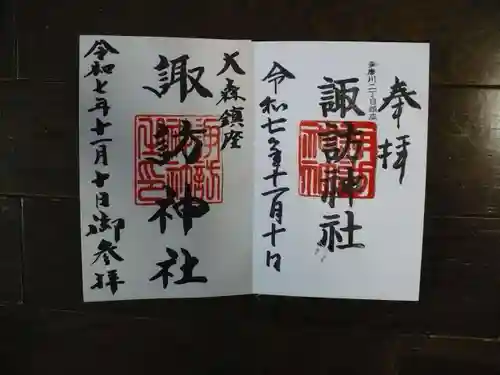 奉拝
多摩川二丁目鎮座
諏訪神社
令和七年十一月十日
大森鎮座
諏訪神社
令和七年十一月十日御参拝